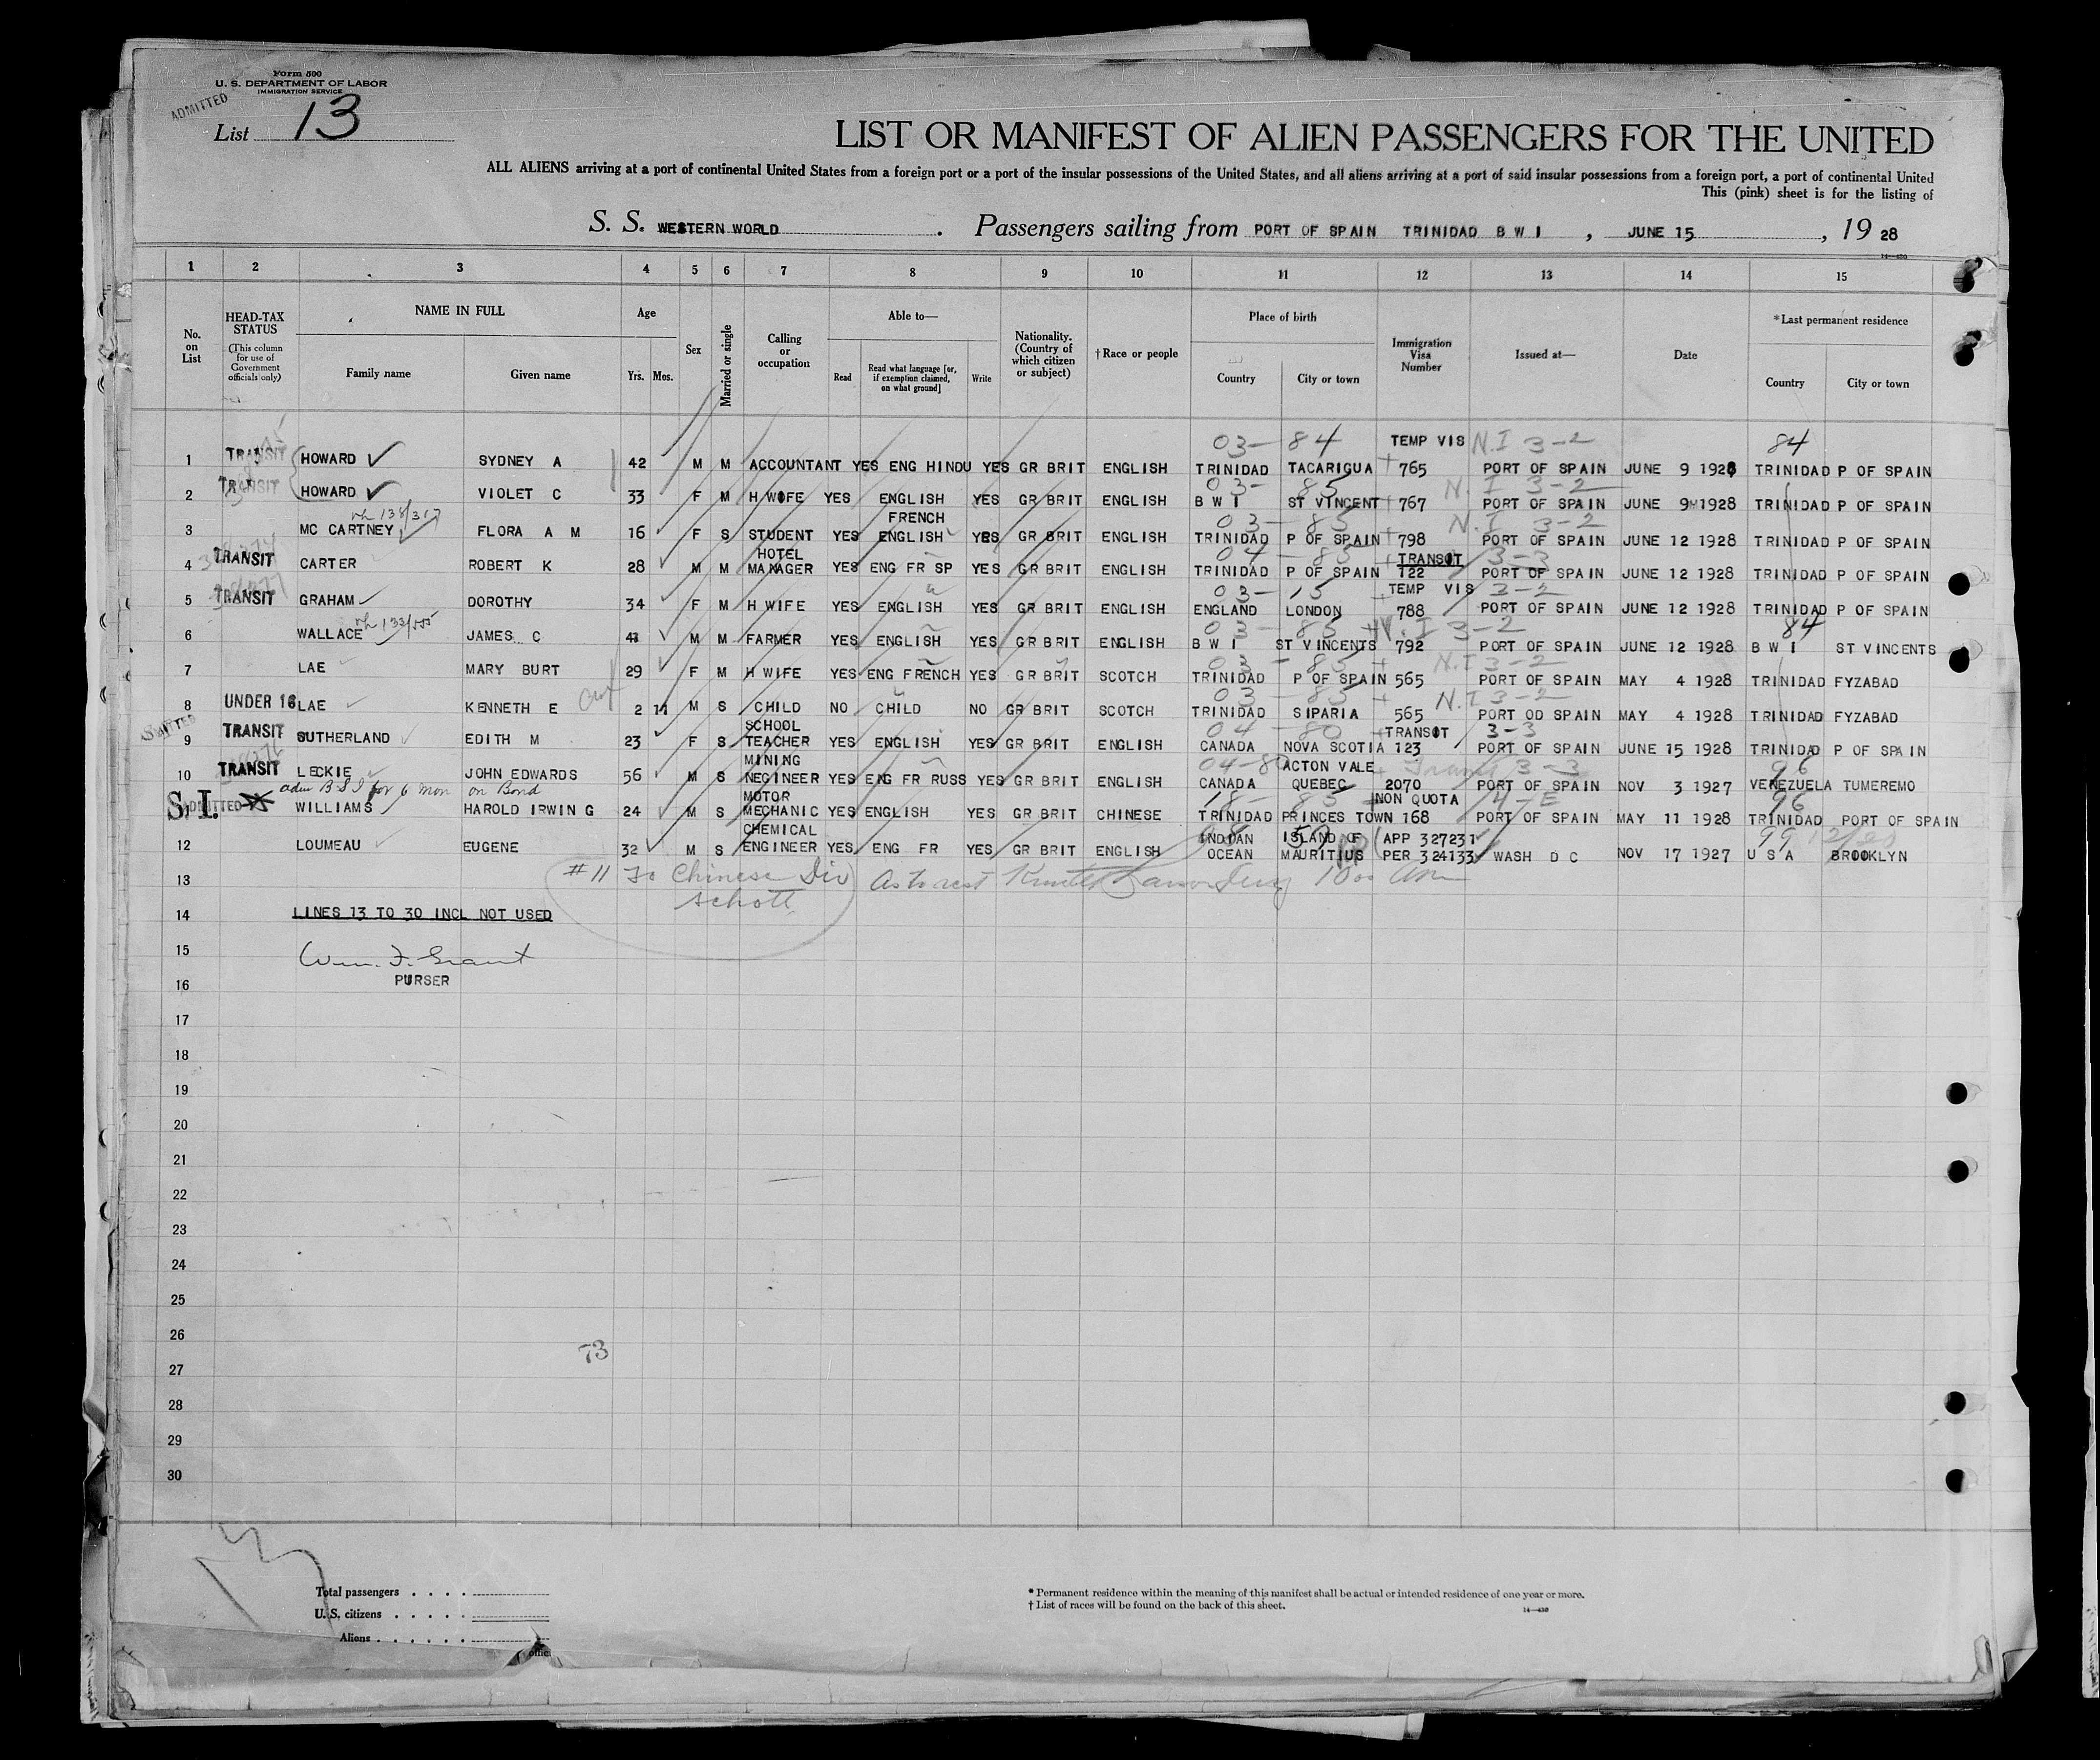 Form 500
U. S. DEPARTMENT OF LABOR
IMMIGRATION SERVICE
ADMITTED
List 13
LIST OR MANIFEST OF ALIEN PASSENGERS FOR THE UNITED
ALL ALIENS arriving at a port of continental United States from a foreign port or a port of the insular possessions of the United States, and all aliens arriving at a port of said insular possessions from a foreign port, a port of continental United
This (pink) sheet is for the listing of
S. S. WESTERN WORLD . Passengers sailing from PORT OF SPAIN TRINIDAD B W I , JUNE 15 , 19 28
14—430
1 2 3 4 5 6 7 8 9 10 11 12 13 14 15
No. on List
HEAD-TAX STATUS (This column for use of Government officials only)
NAME IN FULL
Family name Given name
Age
Yrs. Mos.
Sex
Married or single
Calling or occupation
Able to—
Read Read what language [or, if exemption claimed, on what ground] Write
Nationality. (Country of which citizen or subject)
†Race or people
Place of birth
Country City or town
Immigration Visa Number
Issued at—
Date
*Last permanent residence
Country City or town
03- 84 TEMP VIS N.I 3-2 84
1 TRANSIT HOWARD SYDNEY A 42 M M ACCOUNTANT YES ENG HINDU YES GR BRIT ENGLISH TRINIDAD TACARIGUA 765 PORT OF SPAIN JUNE 9 1928 TRINIDAD P OF SPAIN
03- 85 N.I 3-2
2 TRANSIT HOWARD VIOLET C 33 F M H WIFE YES ENGLISH YES GR BRIT ENGLISH B W I ST VINCENT 767 PORT OF SPAIN JUNE 9 1928 TRINIDAD P OF SPAIN
FRENCH 03- 85 N.I 3-2
3 MC CARTNEY FLORA A M 16 F S STUDENT YES ENGLISH YES GR BRIT ENGLISH TRINIDAD P OF SPAIN 798 PORT OF SPAIN JUNE 12 1928 TRINIDAD P OF SPAIN
HOTEL 04 - 85 TRANSIT 3-3
4 TRANSIT CARTER ROBERT K 28 M M MANAGER YES ENG FR SP YES GR BRIT ENGLISH TRINIDAD P OF SPAIN 122 PORT OF SPAIN JUNE 12 1928 TRINIDAD P OF SPAIN
03- 15 TEMP VIS 3-2
5 TRANSIT GRAHAM DOROTHY 34 F M H WIFE YES ENGLISH YES GR BRIT ENGLISH ENGLAND LONDON 788 PORT OF SPAIN JUNE 12 1928 TRINIDAD P OF SPAIN
03- 85 N.I 3-2 84
6 WALLACE JAMES C 43 M M FARMER YES ENGLISH YES GR BRIT ENGLISH B W I ST VINCENTS 792 PORT OF SPAIN JUNE 12 1928 B W I ST VINCENTS
03 - 85 N.I 3-2
7 LAE MARY BURT 29 F M H WIFE YES ENG FRENCH YES GR BRIT SCOTCH TRINIDAD P OF SPAIN 565 PORT OF SPAIN MAY 4 1928 TRINIDAD FYZABAD
03 - 85 N.I 3-2
8 UNDER 16 LAE KENNETH E 2 11 M S CHILD NO CHILD NO GR BRIT SCOTCH TRINIDAD SIPARIA 565 PORT OD SPAIN MAY 4 1928 TRINIDAD FYZABAD
SCHOOL 04 - 80 TRANSIT 3-3
9 TRANSIT SUTHERLAND EDITH M 23 F S TEACHER YES ENGLISH YES GR BRIT ENGLISH CANADA NOVA SCOTIA 123 PORT OF SPAIN JUNE 15 1928 TRINIDAD P OF SPAIN
MINING 04-80 ACTON VALE Transit 3-3 96
10 TRANSIT LECKIE JOHN EDWARDS 56 M S NEGINEER YES ENG FR RUSS YES GR BRIT ENGLISH CANADA QUEBEC 2070 PORT OF SPAIN NOV 3 1927 VENEZUELA TUMEREMO
adm B S I for 6 mon on Bond MOTOR 18- 85 NON QUOTA 4-E 96
S.I. ADMITTED WILLIAMS HAROLD IRWING G 24 M S MECHANIC YES ENGLISH YES GR BRIT CHINESE TRINIDAD PRINCES TOWN 168 PORT OF SPAIN MAY 11 1928 TRINIDAD PORT OF SPAIN
CHEMICAL INDIAN ISLAND OF (APP 327231 99
12 LOUMEAU EUGENE 32 M S ENGINEER YES ENG FR YES GR BRIT ENGLISH OCEAN MAURITIUS PER 324133 WASH D C NOV 17 1927 U S A BROOKLYN
13 #11 To Chinese Div As to rest
Schott
14 LINES 13 TO 30 INCL NOT USED
15 Wm. F. Grant
16 PURSER
17
18
19
20
21
22
23
24
25
26
73
27
28
29
30
13
Total passengers . . . .
U. S. citizens . . . . .
Aliens . . . . . .
* Permanent residence within the meaning of this manifest shall be actual or intended residence of one year or more.
† List of races will be found on the back of this sheet.
14—430